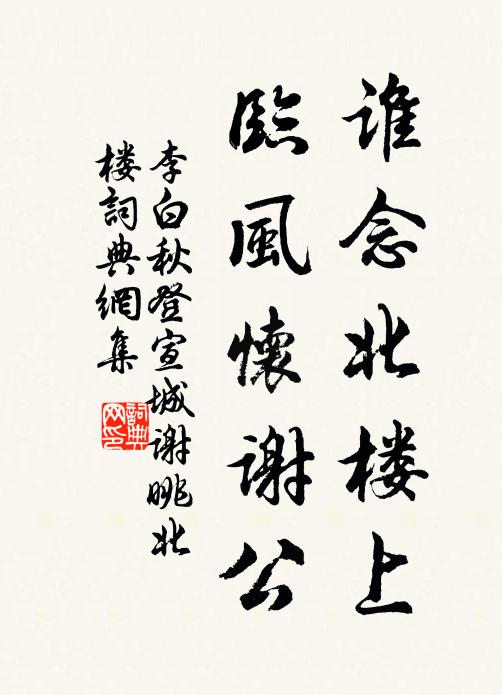 谁念北楼上
臨風懷谢公
李白秋登宣城谢眺北
楼詞典網集
詞典
网印